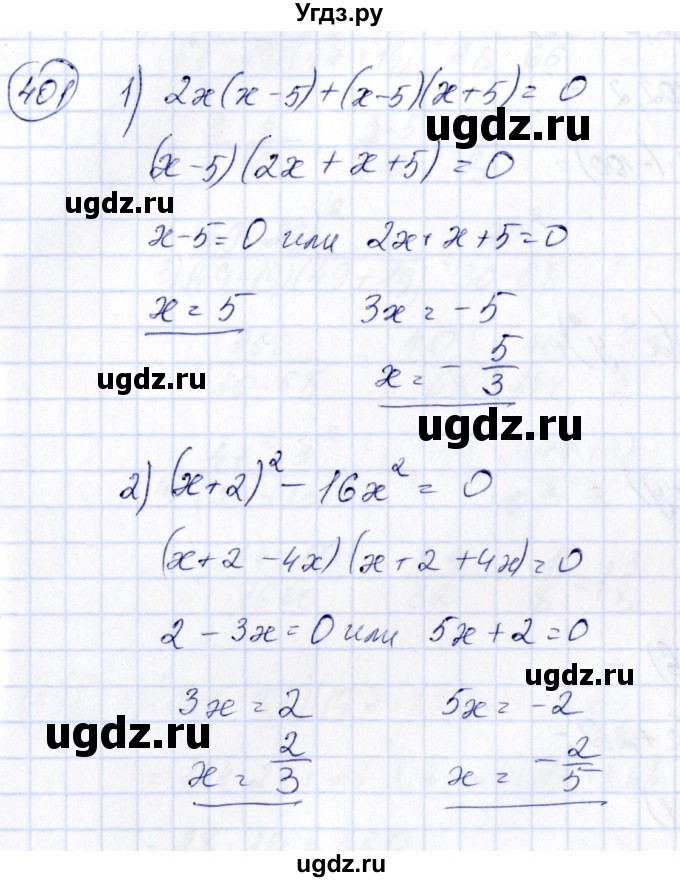 Угдз.ру
401 1) 2x(x-5)+(x-5)(x+5)=0
ugdz.ru
(x-5)(2x+x+5)=0
ugdz.ru
x-5=0 или 2x+x+5=0
x=5 3x=-5
ugdz.ru
x=-5/3
ugdz.ru
2) (x+2)²-16x²=0
(x+2-4x)(x+2+4x)=0
2-3x=0 или 5x+2=0
ugdz.ru
3x=2 5x=-2
ugdz.ru
x=2/3 x=-2/5
ugdz.ru